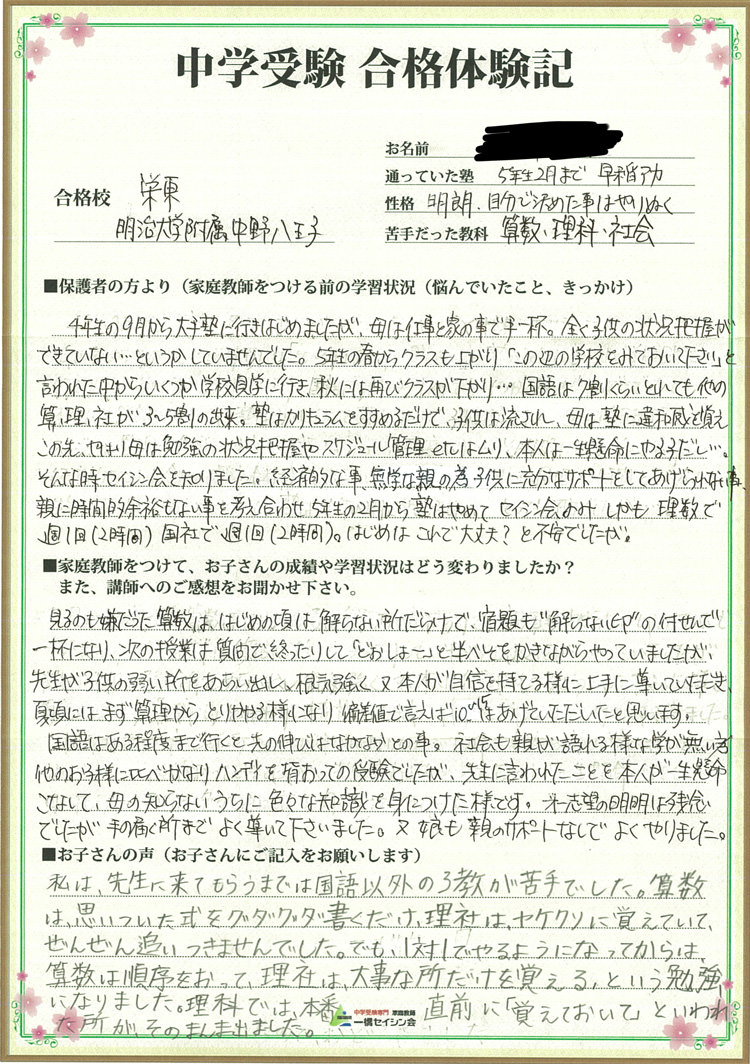 中学受験 合格体験記
お名前
通っていた塾 5年生2月まで 早稲アカ
合格校 栄東
性格 明朗、自分で決めた事はやりぬく
明治大学附属中野八王子
苦手だった教科 算数・理科・社会
■保護者の方より（家庭教師をつける前の学習状況（悩んでいたこと、きっかけ）
4年生の9月から大手塾に行きはじめましたが、母は仕事と家の事で手一杯。全く子供の状況把握が
できていない…というかしていませんでした。5年生の春からクラスも上がり「この辺の学校をみておいて下さい」と
言われた中からいくつか学校見学に行き、秋には再びクラスが下がり… 国語は夕割くらいとれても他の
算、理、社が3〜5割の出来。塾はカリキュラムをすすめるだけで、子供は流され、母は塾に違和感を覚え
この先、やはり母は勉強の状況把握やスケジュール管理etcはムリ、本人は一生懸命にやる子だし…。
そんな時セイシン会を知りました。経済的な事、無学な親の為子供に充分なサポートをしてあげられない事、
親に時間的余裕もない事を考え合わせ 5年生の2月から塾はやめて セイシン会のみ しかも 理数で
週1回(2時間) 国社で週1回(2時間)。はじめは これで大丈夫？と不安でしたが。
■家庭教師をつけて、お子さんの成績や学習状況はどう変わりましたか？
また、講師へのご感想をお聞かせ下さい。
見るのも嫌だった算数は、はじめの頃は解らない所だらけで、宿題も"解らない印"の付せんで
一杯になり、次の授業は質問で終ったりして「どおしよ〜」と半べそをかきながらやっていましたが、
先生が子供の弱い所をあらい出し、根気強く 又本人が自信を持てる様に上手に導していただき、
夏頃には まず算理から とりやがる様になり 偏差値で言えば10位はあげていただいたと思います。
国語はある程度まで行くと先の伸びはなかなかとの事。社会も親が語れる様な学が無い為
他のお子様に比べかなりハンディを背おっての受験でしたが、先生に言われたことを本人が一生懸命
こなして、母の知らないうちに色々な知識を身につけた様です。第一志望の明明は残念
でしたが 手の届く所まで よく導いて下さいました。又 娘も 親のサポートなしで よくやりました。
■お子さんの声（お子さんにご記入をお願いします）
私は、先生に来てもらうまでは国語以外の3教が苦手でした。算数
は、思いついた式をグダグダ書くだけ、理社は、ヤケクソに覚えていて、
ぜんぜん追いつきませんでした。でも、1対1でやるようになってからは、
算数は順序をおって、理社は、大事な所だけを覚える、という勉強
になりました。理科では、本番 直前に「覚えておいて」といわれ
た所が、そのまんま出ました。
中学受験専門 家庭教師
一橋セイシン会